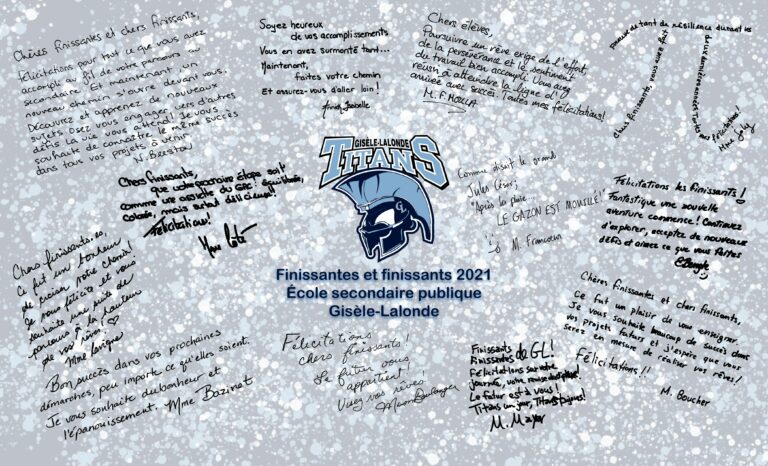 Chères finissantes et chers finissants,
Félicitations pour tout ce que vous avez
accompli au fil de votre parcours au
secondaire! Et maintenant, un
nouveau chemin s'ouvre devant vous.
Découvrez et apprenez de nouveaux
sujets. Osez vous engager vers d'autres
défis. La vie vous attend! Je vous
souhaite de connaître le même succès
dans tous vos projets à venir.
Soyez heureux
de vos accomplissements
Vous en avez surmonté tant...
Maintenant,
faites votre chemin
Et assurez-vous d'aller loin!
Chers élèves,
Poursuivre un rêve exige de l'effort,
de la persévérance et le sentiment
du travail bien accompli. Vous avez
réussi à atteindre la ligne d'
arrivée avec succès. Toutes mes félicitations!
Chers finissants,
preuve de tant de résilience durant les
deux dernières années
mes félicitations!
Mme Joly
GISÈLE-LALONDE
TITANS
Chers finissants,
que votre prochaine étape soit
comme une assiette du GFC: équilibrée,
colorée, mais surtout délicieuse!!
Félicitations!
Mme Côté
Comme disait le grand
Jules César;
"Après la pluie...
LE GAZON EST MOUILLÉ!"
M. Francoeur
Félicitations les finissants!
Fantastique une nouvelle
aventure commence! Continuez
d'explorer, acceptez de nouveaux
défis et aimez ce que vous faites
Chers finissants.es,
Ce fut un bonheur
de croiser votre chemin!
Je vous félicite et vous
souhaite une suite de
parcours à la hauteur
de vos rêves!
Mme Lavigne
Finissantes et finissants 2021
École secondaire publique
Gisèle-Lalonde
Chères finissantes et chers finissants,
Ce fut un plaisir de vous enseigner.
Je vous souhaite beaucoup de succès dans
vos projets futurs et j'espère que vous
serez en mesure de réaliser vos rêves!
Félicitations!!
M. Boucher
Bon succès dans vos prochaines
démarches, peu importe ce qu'elles soient.
Je vous souhaite du bonheur et
l'épanouissement. Mme Bazinet
Félicitations
chers finissants!
Le futur vous
appartient!
Vivez vos rêves!
Finissants
Finissantes de GL!
Félicitations sur votre
journée, votre remise des diplômes!
Le futur est à vous!
Titans un jour, Titans toujours!
M. Mayer